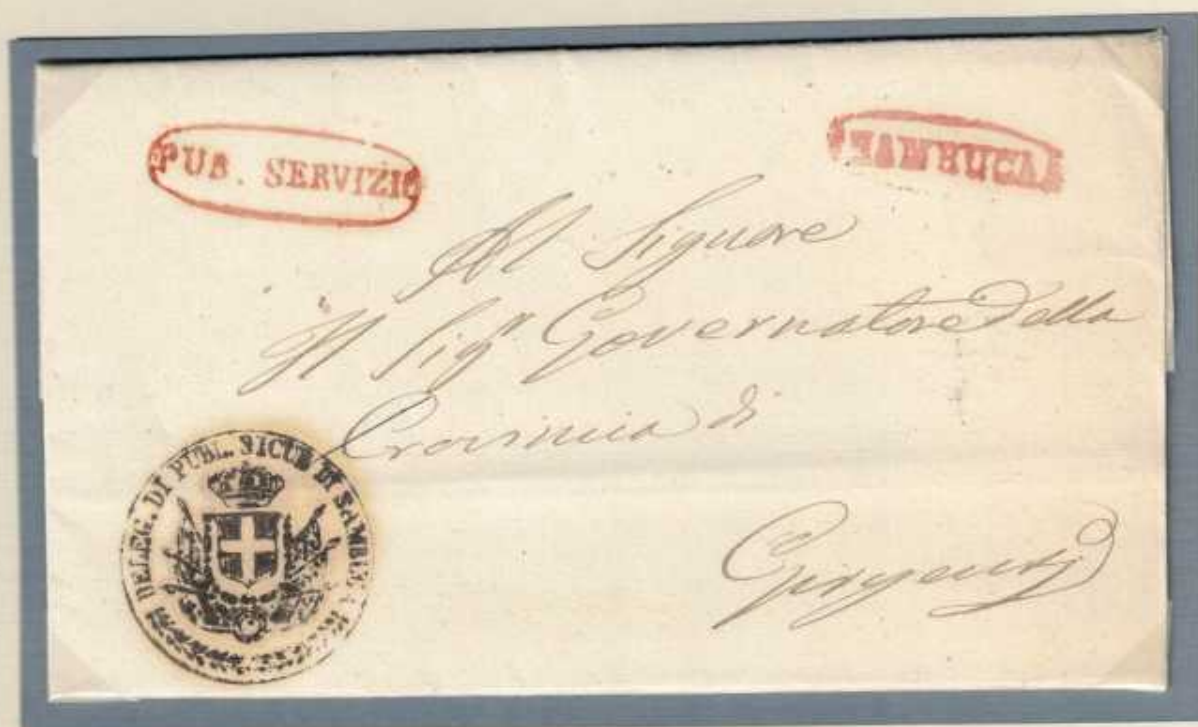 PUB. SERVIZIO
ZAMBUCA
Al Signore
Il Sigr Governatore Della
Provincia di
Girgenti
DELEG. DI PUBL. SICUR DI SAMBUCA